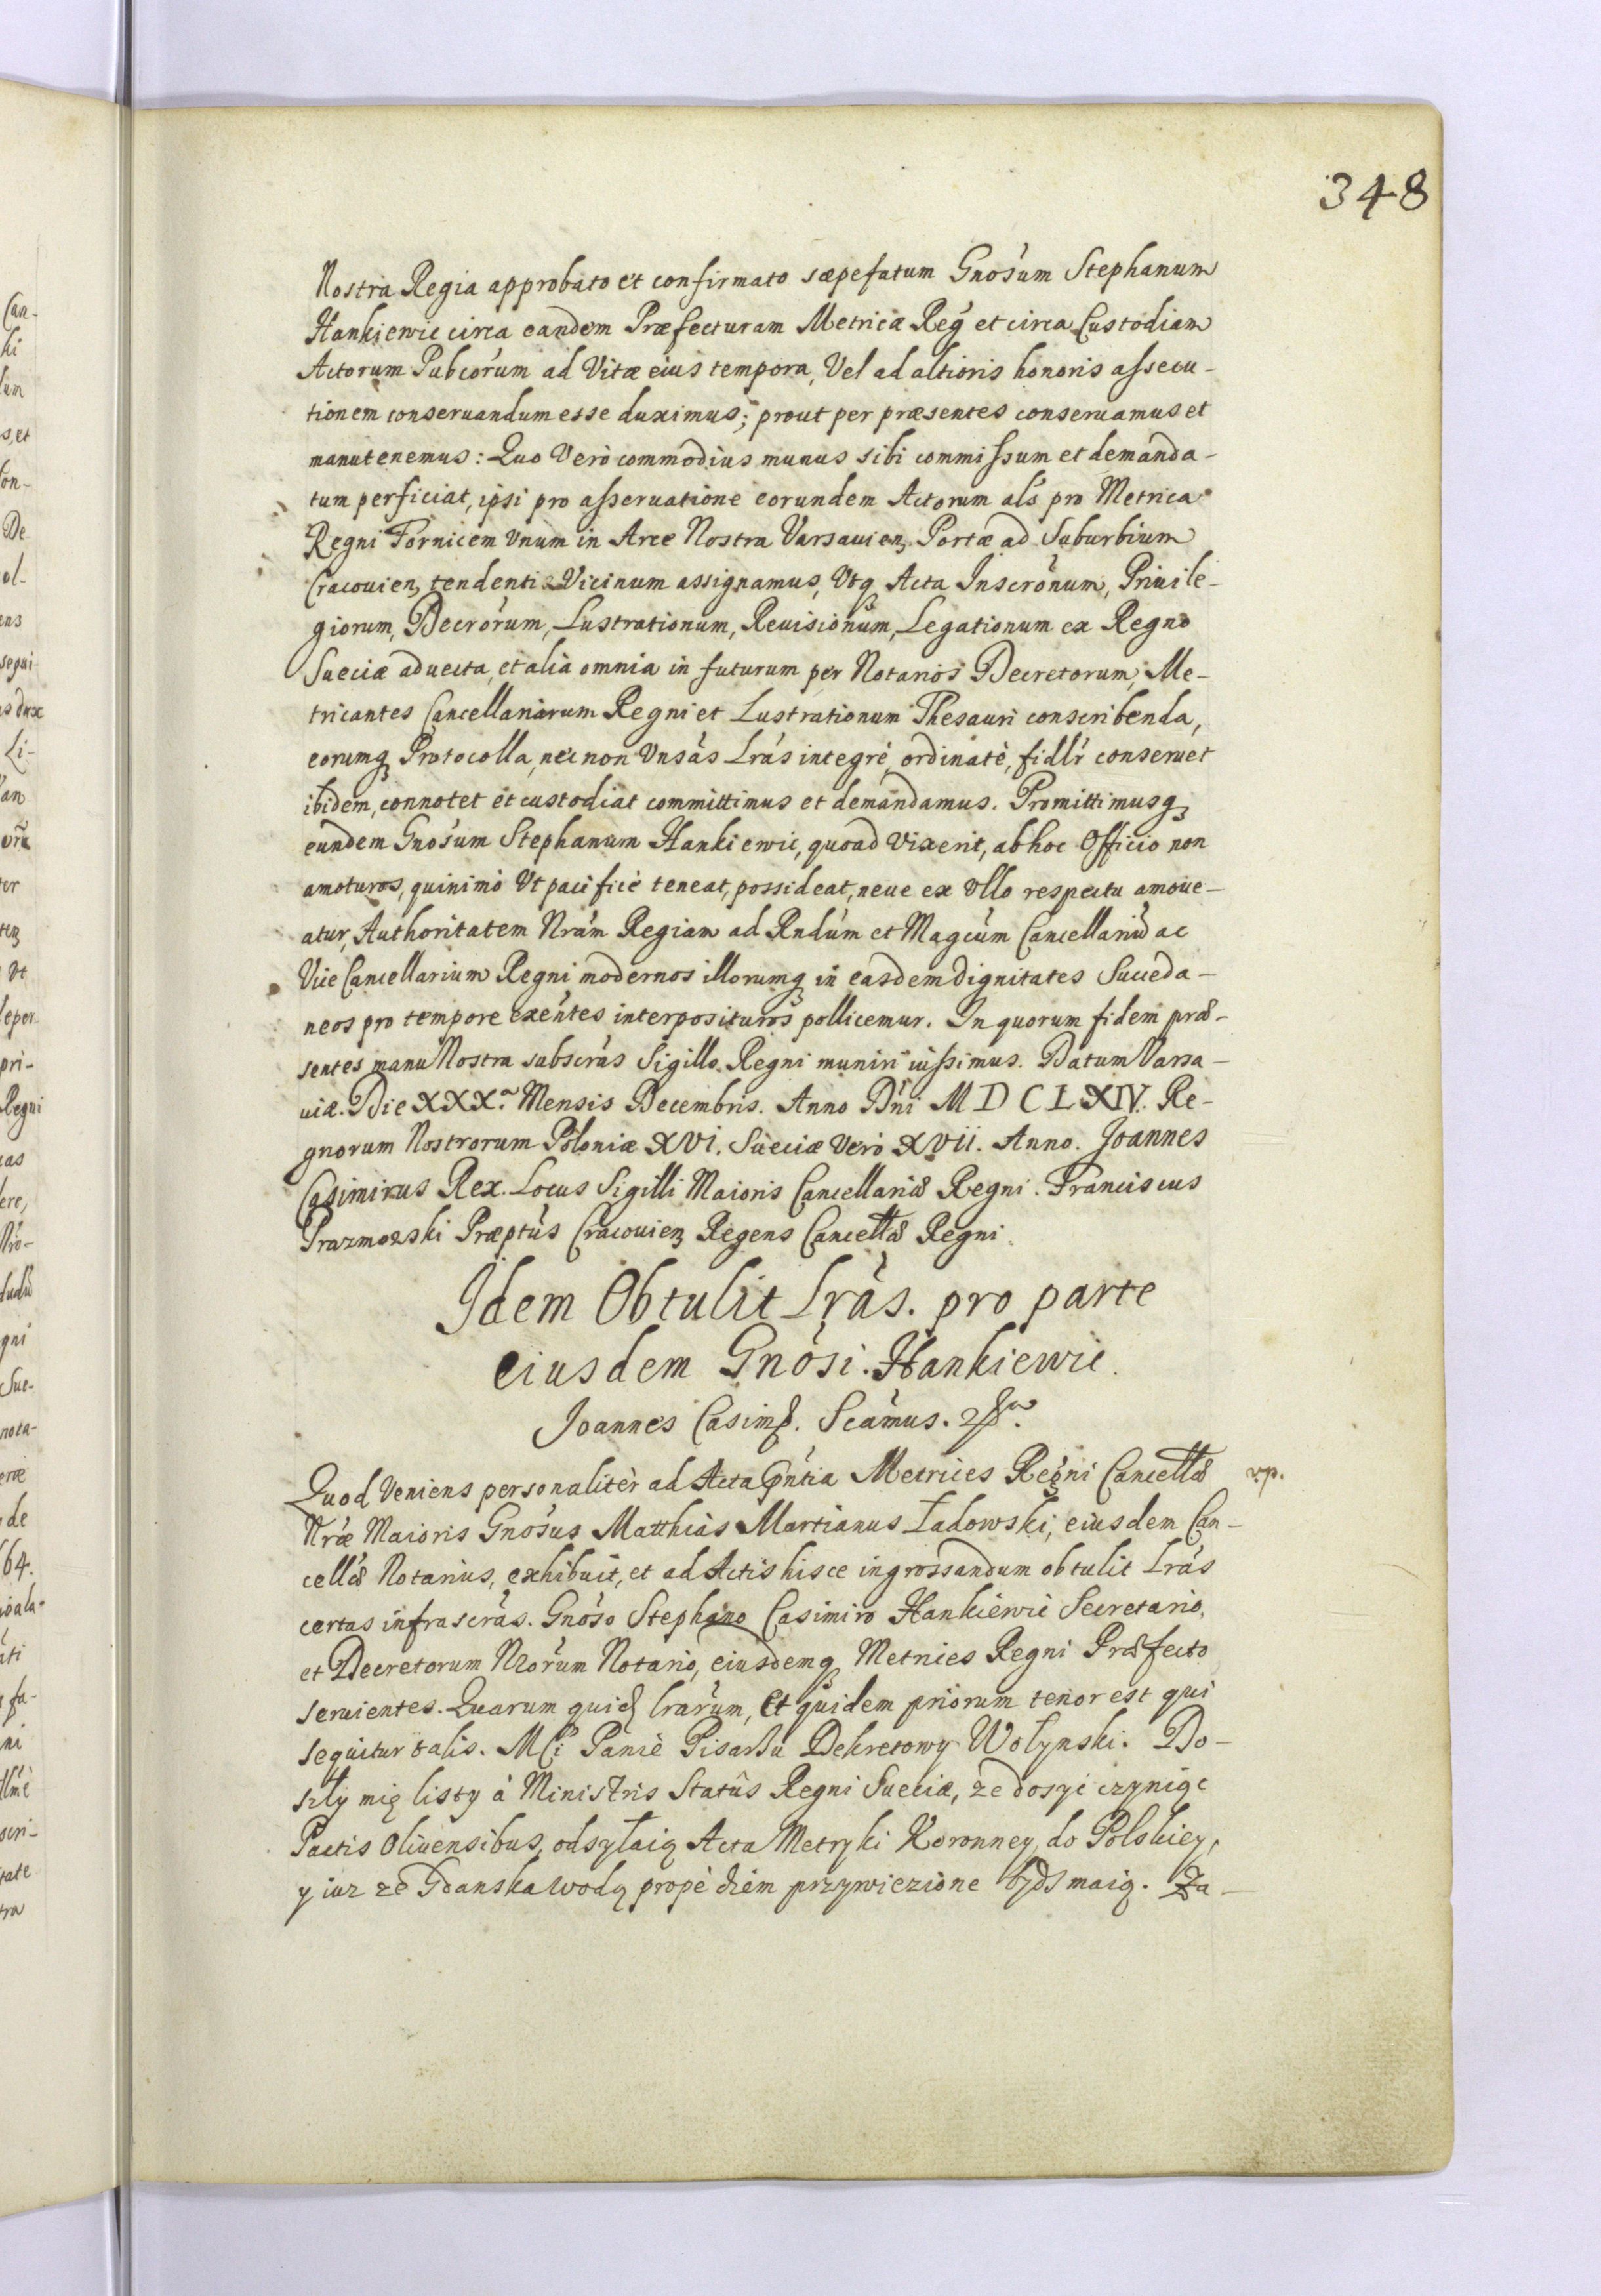 348
Nostra Regia approbato et confirmato sæpefatum Gnosũm Stephanum
Hankiewic circa eandem Præfecturam Metricæ Reg̃ et circa Custodiam
Actorum Pubcõrum ad Vitæ eius tempora, Vel ad altioris honoris assecu-
tionem conseruandum esse duximus; prout per præsentes conseruamus et
manutenemus: Quo Verò commodius munus sibi commissum et demanda-
tum perficiat, ipsi pro asseruatione eorundem Actorum als̃ pro Metrica
Regni Fornicem Vnum in Arce Nostra Varsauienȝ Portæ ad Suburbium
Cracouienȝ tendenti Vicinum assignamus, Vtqȝ Acta Inscrõnum, Priuile-
giorum, Decrõrum, Lustrationum, Reuisionum, Legationum ex Regno
Sueciæ aduecta, et alia omnia in futurum per Notarios Decretorum, Me-
tricantes Cancellariarum Regni et Lustrationum Thesauri conscribenda,
eorumqȝ Protocolla, nec non Vnsãs Lrãs integrè, ordinatè, fidlr̃ conseruet
ibidem, connotet et custodiat committimus et demandamus. Promittimusqȝ
eundem Gnosũm Stephanum Hankiewic, quoad Vixerit, ab hoc Officio non
amoturos, quinimò Vt pacificè teneat, possideat, neue ex Vllo respectu amoue-
atur, Authoritatem Nrãm Regiam ad Rndũm et Magcũm Cancellariũ ac
Vice Cancellarium Regni modernos illorumqȝ in easdem dignitates Succeda-
neos pro tempore exẽntes interposituros pollicemur. In quorum fidem præ-
sentes manu Nostra subscrãs Sigillo Regni muniri iussimus. Datum Varsa-
uiæ. Die XXX.ã Mensis Decembris. Anno Dñi M D C L XIV. Re-
gnorum Nostrorum Poloniæ XVI. Sueciæ Verò XVII. Anno. Joannes
Casimirus Rex. Locus Sigilli Maioris Cancellariæ Regni. Franciscus
Prazmowski Præptũs Cracouienȝ Regens Cancellæ Regni.
Idem Obtulit Lrãs. pro parte
eiusdem Gnõsi. Hankiewic.
Joannes Casim. Scãmus.
Quod Veniens personalitèr ad Acta Pñtia Metrices Regni Cancellæ
Nrẽ Maioris Gnosũs Matthias Martianus Ładowski, eiusdem Can-
cellæ Notarius, exhibuit, et ad Actis hisce ingrossandum obtulit Lrãs
certas infrascrãs. Gnõso Stephano Casimiro Hankiewic Secretario,
et Decretorum Nrõrum Notario, eiusdemqȝ Metrices Regni Præfecto
seruientes. Quarum quid lrãrum, Et quidem priorum tenor est qui
sequitur talis. Mci Panie Pisarzu Dekretowy Wołynski. Do-
szły mię listy à Ministris Statûs Regni Sueciæ, ze dosyć czyniąc
Pactis Oliuensibus, odsyłaią Acta Metryki Koronney, do Polskiey,
y iuz ze Gdanska wodą propè diem przywiezione bydz maią. Za-